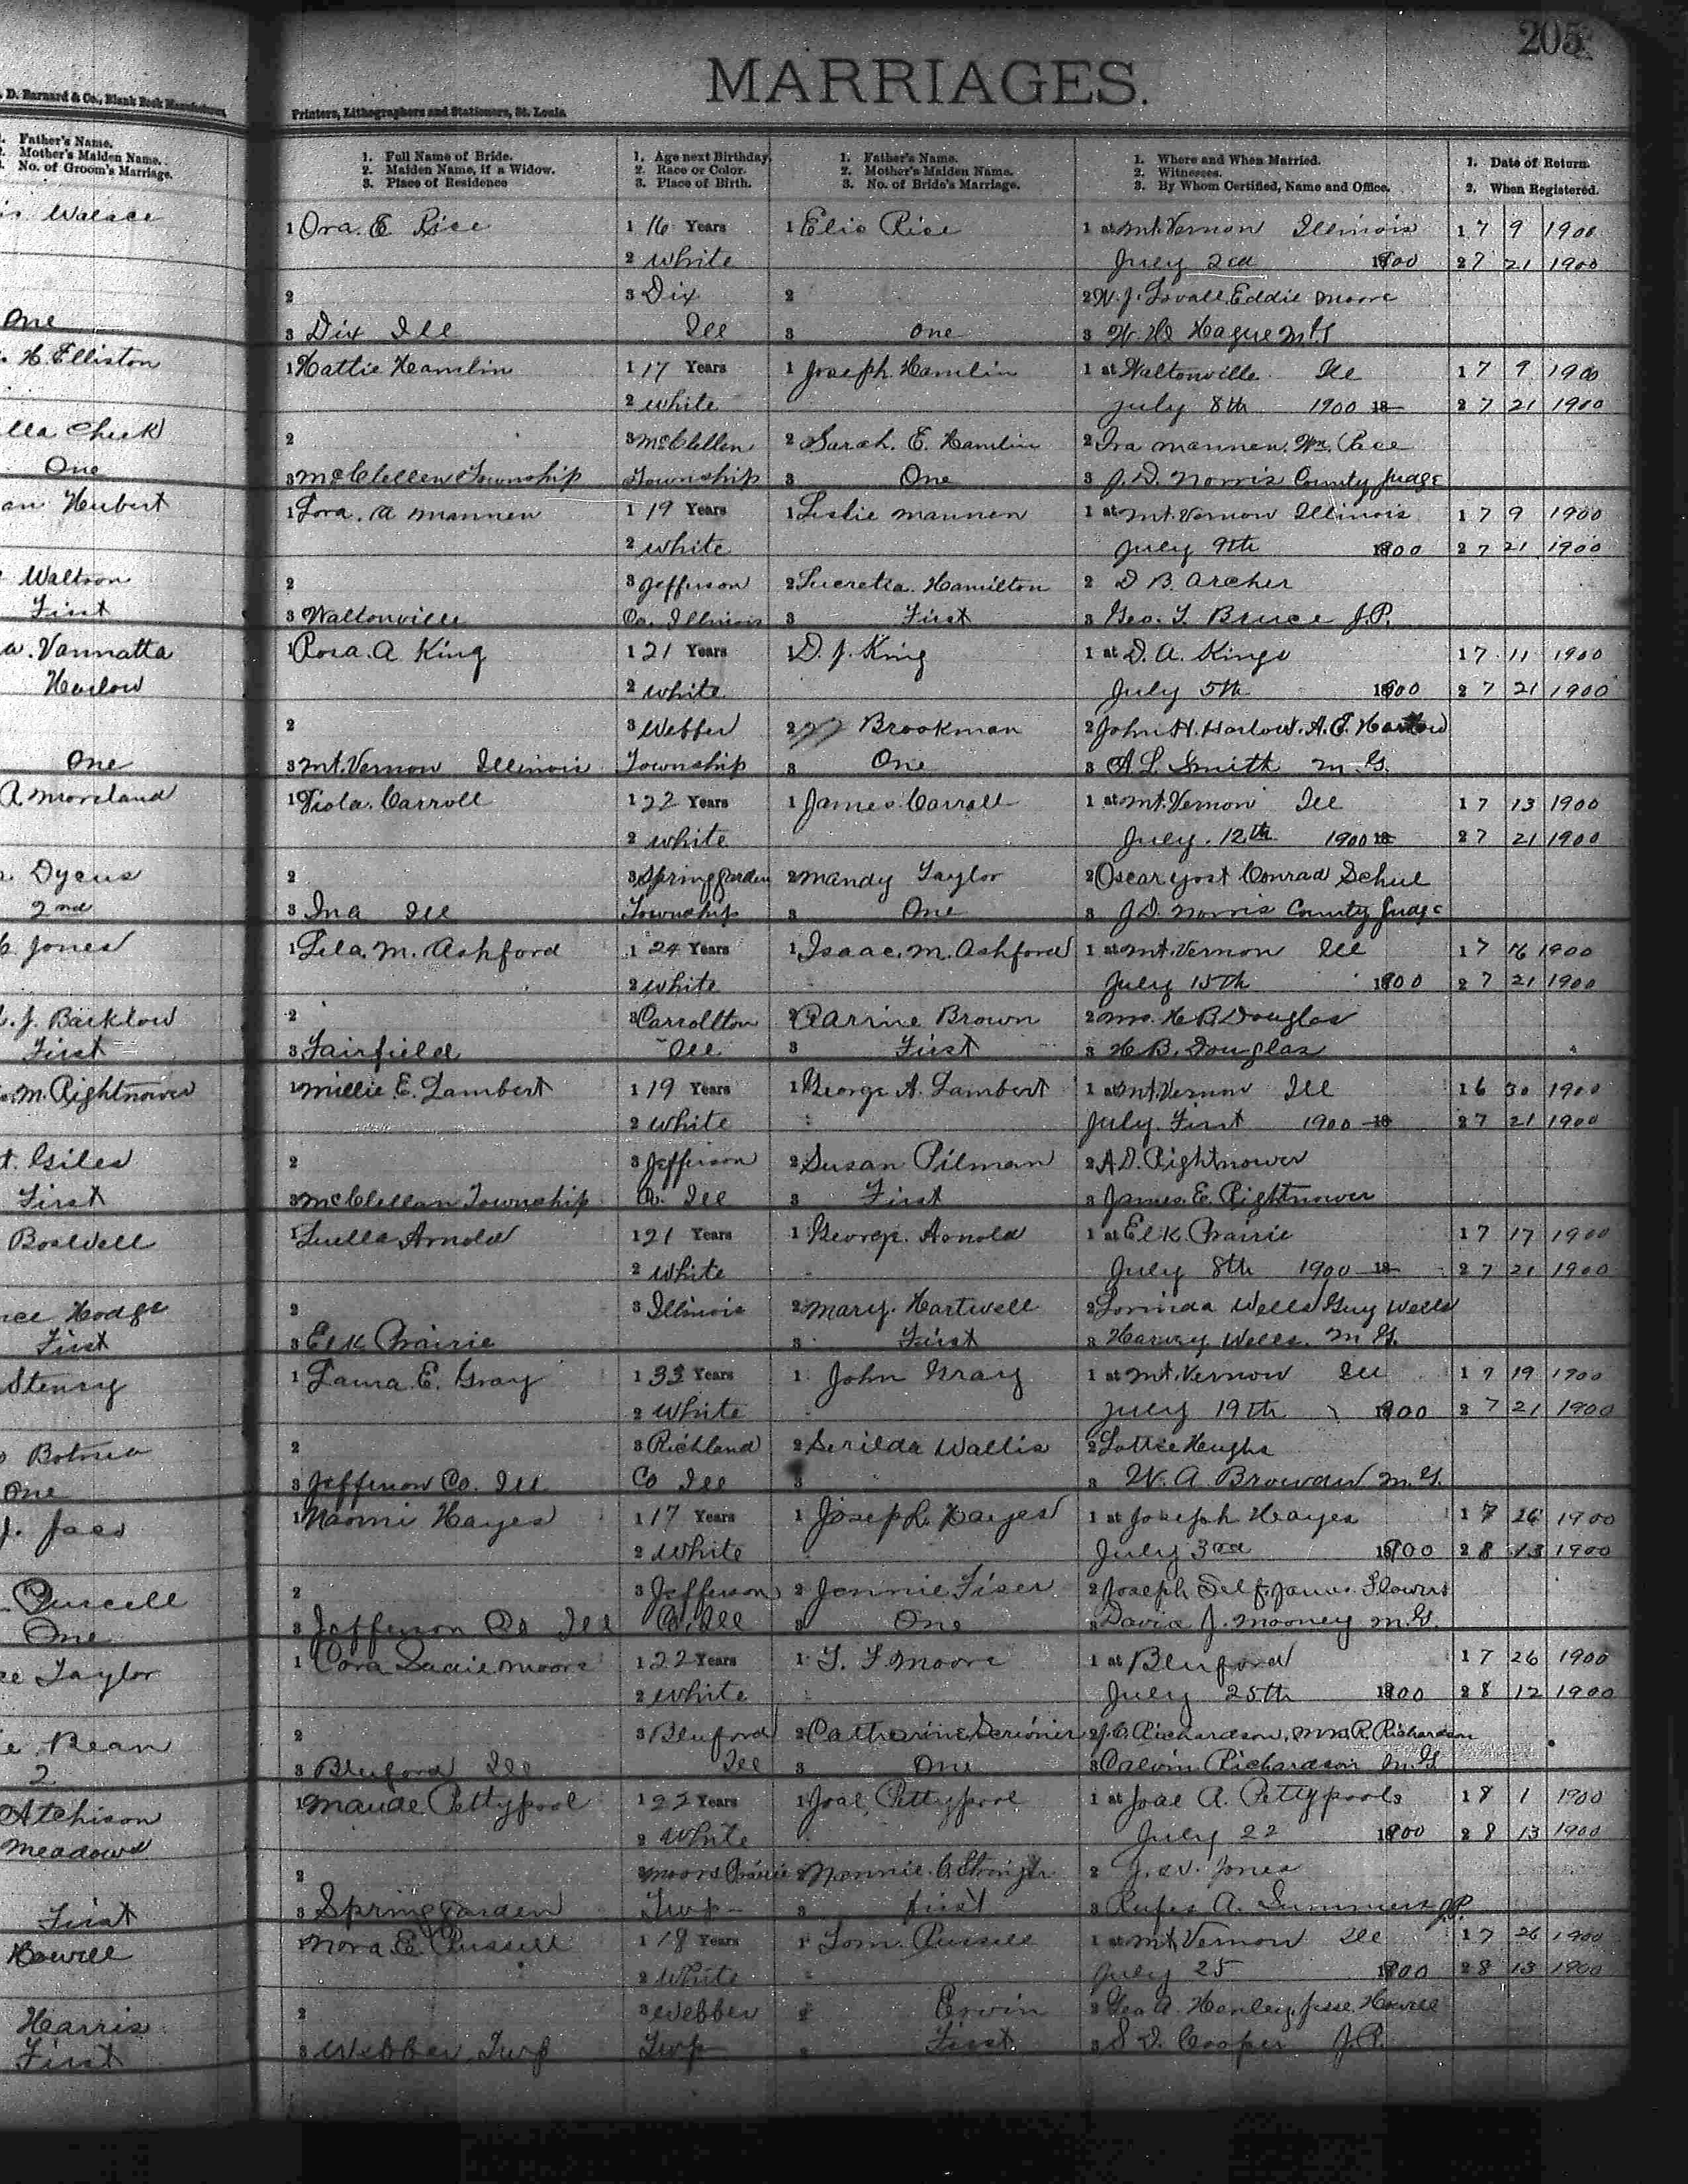 205
MARRIAGES.
D. Barnard & Co., Blank Book Manufacturers,
Printers, Lithographers and Stationers, St. Louis.
Father's Name.
Mother's Maiden Name.
No. of Groom's Marriage.
1. Full Name of Bride. 1. Age next Birthday. 1. Father's Name. 1. Where and When Married. 1. Date of Return.
2. Maiden Name, if a Widow. 2. Race or Color. 2. Mother's Maiden Name. 2. Witnesses.
3. Place of Residence 3. Place of Birth. 3. No. of Bride's Marriage. 3. By Whom Certified, Name and Office. 2. When Registered.
Walace 1 Ora. E Rice 1 16 Years 1 Elis Rice 1 at Mt. Vernon Illinois 1 7 9 1900
2 White July 2nd 1900 2 7 21 1900
2 3 Dix 2 2 W. J. Lovall, Eddie Moore
One 3 Dix Ill Ill 3 One 3 W. H. Hague M.G
H. Elliston 1 Hattie Hamlin 1 17 Years 1 Joseph Hamlin 1 at Waltonville Ill 1 7 9 1900
2 White July 8th 1900 18 2 7 21 1900
lla Cheek 2 3 McClellen 2 Sarah. E. Hamlin 2 Ira Mannen, Wm. Pace
One 3 McClellen Township Township 3 One 3 J. D. Norris County Judge
an Hubert 1 Lora. A Mannen 1 19 Years 1 Leslie Mannen 1 at Mt. Vernon Illinois 1 7 9 1900
2 White July 9th 1900 2 7 21 1900
Waltson 2 3 Jefferson 2 Lucretia. Hamilton 2 D B. Archer
First 3 Waltonville Co. Illinois 3 First 3 Geo. T. Bruce J.P.
a. Vannatta 1 Rosa. A King 1 21 Years 1 D. J. King 1 at D. A. Kings 1 7 11 1900
Harlow 2 White July 5th 1900 2 7 21 1900
2 3 Webber 2 Brookman 2 John H. Harlow. A. E. Harlow
One 3 Mt. Vernon Illinois Township 3 One 3 A. L. Smith M.G.
A Moreland 1 Viola. Carroll 1 22 Years 1 James Carroll 1 at Mt. Vernon Ill 1 7 13 1900
2 White July. 12th 1900 18 2 7 21 1900
Dycus 2 3 Spring Garden 2 Mandy Taylor 2 Oscar Yost Conrad Schul
2nd 3 Ina Ill Township 3 One 3 J. D. Norris County Judge
Jones 1 Lela. M. Ashford 1 24 Years 1 Isaac. M. Ashford 1 at Mt. Vernon Ill 1 7 16 1900
2 White July 15th 1900 2 7 21 1900
J. Barklow 2 3 Carrollton 2 Brown 2 Mrs. H. B. Douglas
First 3 Fairfield Ill 3 First 3 H. B. Douglas
M. Rightnower 1 Millie. E. Lambert 1 19 Years 1 George A. Lambert 1 at Mt. Vernon Ill 1 6 30 1900
2 White July First 1900 18 2 7 21 1900
Giles 2 3 Jefferson 2 Susan Pilman 2 A. D. Rightnower
First 3 McClellan Township Co. Ill 3 First 3 James. E. Rightnower
Boswell 1 Luella Arnold 1 21 Years 1 George. Arnold 1 at Elk Prairie 1 7 17 1900
2 White July 8th 1900 18 2 7 21 1900
nce Hodge 2 3 Illinois 2 Mary. Hartwell 2 Lorinda Wells Guy Wells
First 3 Elk Prairie 3 First 3 Harvey Wells. M.G.
1 Laura. E. Gray 1 33 Years 1 John Gray 1 at Mt. Vernon Ill 1 7 19 1900
2 White July 19th 1900 2 7 21 1900
2 3 Richland 2 Serilda Wallis 2 Lottie Hughs
One 3 Jefferson Co. Ill Co Ill 3 3 W. A. M.G.
1 Naomi Hayes 1 17 Years 1 Joseph Hayes 1 at Joseph Hayes 1 7 26 1900
2 White July 3rd 1900 2 8 13 1900
Purcell 2 3 Jefferson 2 Jennie Fiser 2 Joseph Self. James Flowers
One 3 Jefferson Co Ill Co. Ill 3 One 3 David J. Mooney M.G.
Taylor 1 Cora Sadie Moore 1 22 Years 1 T. F. Moore 1 at Bluford 1 7 26 1900
2 White July 25th 1900 2 8 12 1900
Bean 2 3 Bluford 2 Catherine Scrivner 2 J. C. Richardson, Mrs. R. Richardson
2 3 Bluford Ill Ill 3 One 3 Calvin Richardson M.G
Atchison 1 Maude Pettypool 1 22 Years 1 Joal Pettypool 1 at Joal A. Pettypools 1 8 1 1900
Meadows 2 White July 22 1900 2 8 13 1900
2 3 Moors Prairie 2 Nannie 2 Jones
First 3 Spring Garden Twp 3 First 3 Rufes A. Summers J.P.
Howell 1 Nora E. Russell 1 18 Years 1 Tom. Russell 1 at Mt Vernon Ill 1 7 26 1900
2 White July 25 1900 2 8 13 1900
Harris 2 3 Webber 2 Erwin 2 Geo A. Henley, Jesse Howell
First 3 Webber Twp Twp 3 First. 3 S. D. Cooper J.P.